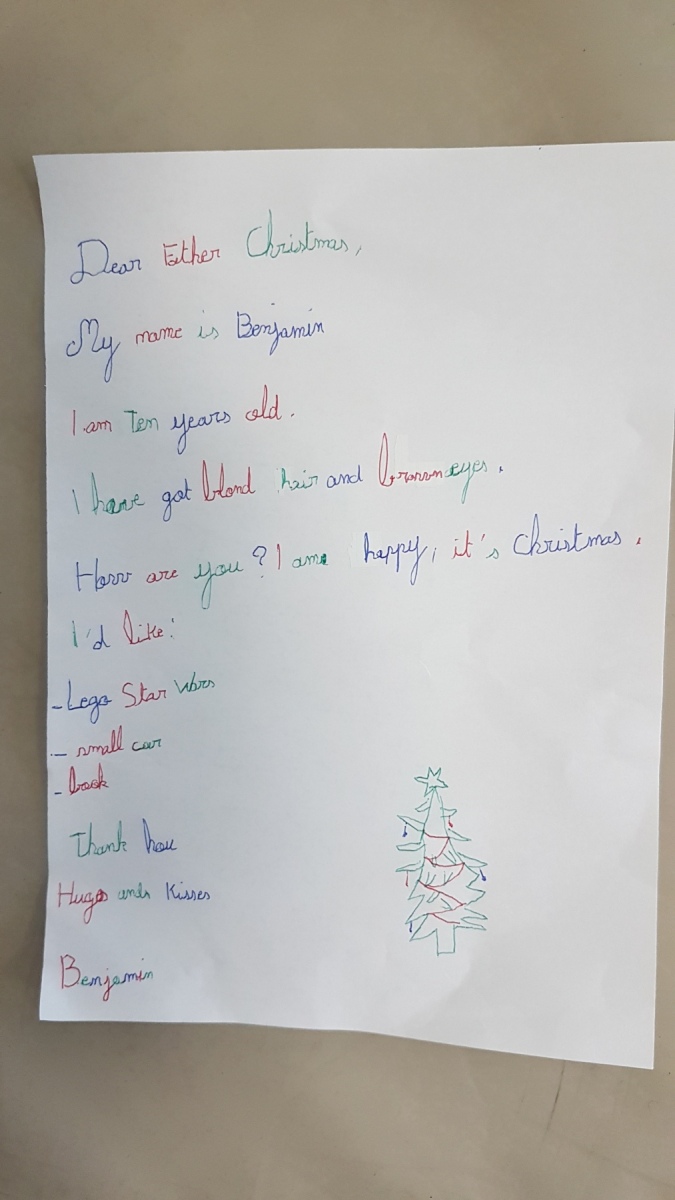 Dear Father Christmas,
My name is Benjamin
I am Ten years old.
I have got blond hair and brown eyes.
How are you? I am happy, it's Christmas.
I'd like:
- Lego Star Wars
- small car
- book
Thank you
Hugs and Kisses
Benjamin